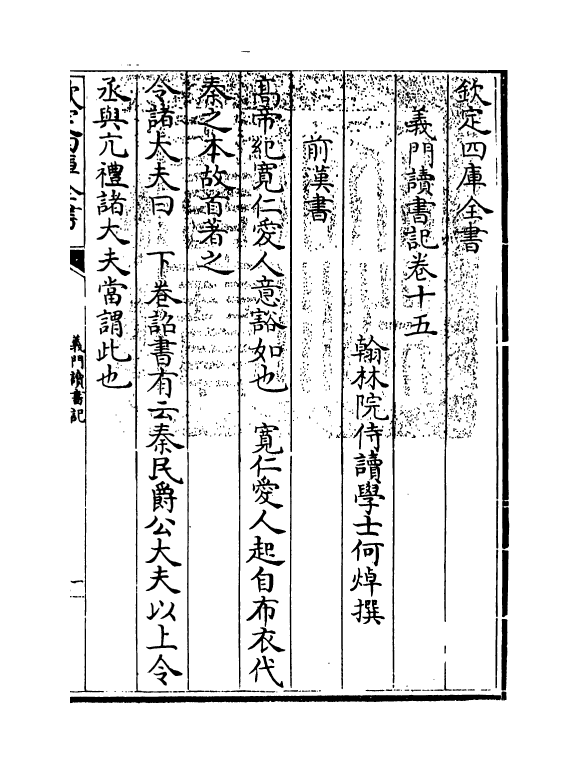 欽定四庫全書
義門讀書記卷十五
翰林院侍讀學士何焯撰
前漢書
高帝紀寛仁愛人意豁如也　寛仁愛人起自布衣代
秦之本故首著之
令諸大夫曰　下卷詔書有云秦民爵公大夫以上令
丞與亢禮諸大夫當謂此也
欽定四庫全書
義門讀書記
一